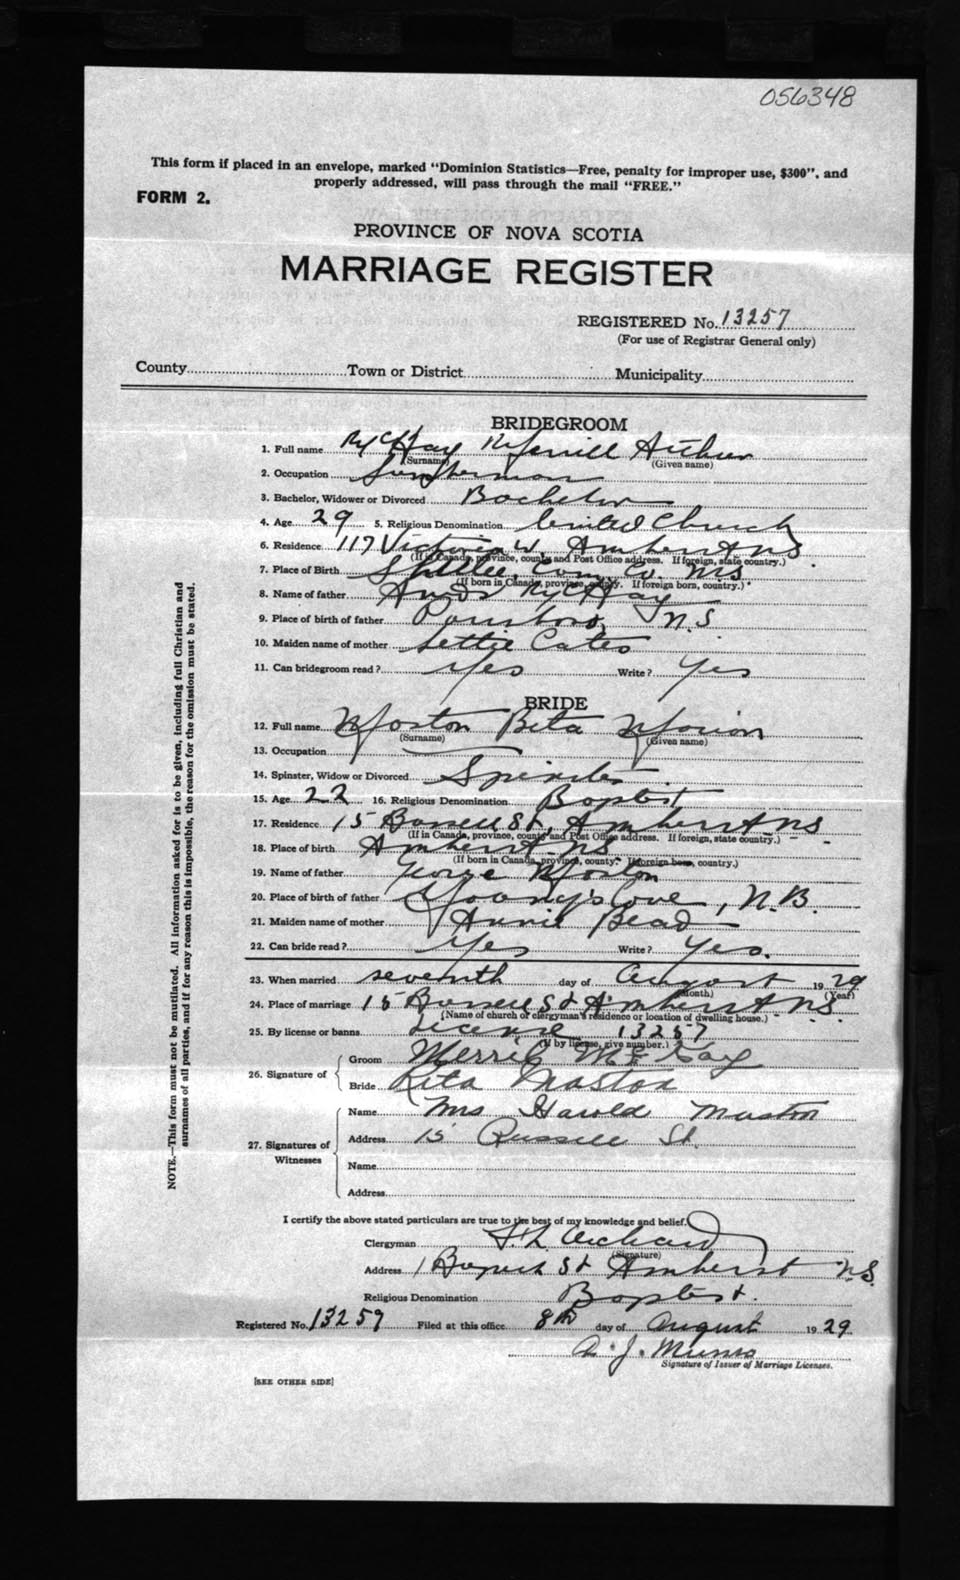 056348
This form if placed in an envelope, marked "Dominion Statistics—Free, penalty for improper use, $300", and
properly addressed, will pass through the mail "FREE."
FORM 2.
PROVINCE OF NOVA SCOTIA
MARRIAGE REGISTER
REGISTERED No. 13257
(For use of Registrar General only)
County Town or District Municipality
BRIDEGROOM
1. Full name McKay Merrill Arthur
(Surname) (Given name)
2. Occupation
3. Bachelor, Widower or Divorced Bachelor
4. Age 29 5. Religious Denomination United Church
6. Residence 117 Victoria W. Amherst N S
(If in Canada, province, county and Post Office address. If foreign, state country.)
7. Place of Birth Co. N.S
(If born in Canada, province, county. If foreign born, country.)
8. Name of father McKay
9. Place of birth of father Parrsboro, N.S
10. Maiden name of mother Lettie Cates
11. Can bridegroom read? Yes Write? Yes
BRIDE
12. Full name Maston Reta Marion
(Surname) (Given name)
13. Occupation
14. Spinster, Widow or Divorced Spinster
15. Age 22 16. Religious Denomination Baptist
17. Residence 15 Russell St, Amherst N S
(If in Canada, province, county and Post Office address. If foreign, state country.)
18. Place of birth Amherst N S
(If born in Canada, province, county. If foreign born, country.)
19. Name of father George Maston
20. Place of birth of father Young's Cove, N.B.
21. Maiden name of mother Annie Bead
22. Can bride read? Yes Write? Yes.
23. When married seventh day of August 19 29
(Month) (Year)
24. Place of marriage 15 Russell St Amherst N.S.
(Name of church or clergyman's residence or location of dwelling house.)
25. By license or banns License 13257
(If by license, give number.)
26. Signature of
Groom Merril McKay
Bride Reta Maston
27. Signatures of Witnesses
Name Mrs Harold Maston
Address 15 Russell St.
Name
Address
I certify the above stated particulars are true to the best of my knowledge and belief.
Clergyman Orchard
(Signature)
Address St Amherst N.S.
Religious Denomination Baptist.
Registered No. 13257 Filed at this office 8th day of August 19 29
A. J. Munro
Signature of Issuer of Marriage Licenses.
[SEE OTHER SIDE]
NOTE.—This form must not be mutilated. All information asked for is to be given, including full Christian and
surnames of all parties, and if for any reason this is impossible, the reason for the omission must be stated.